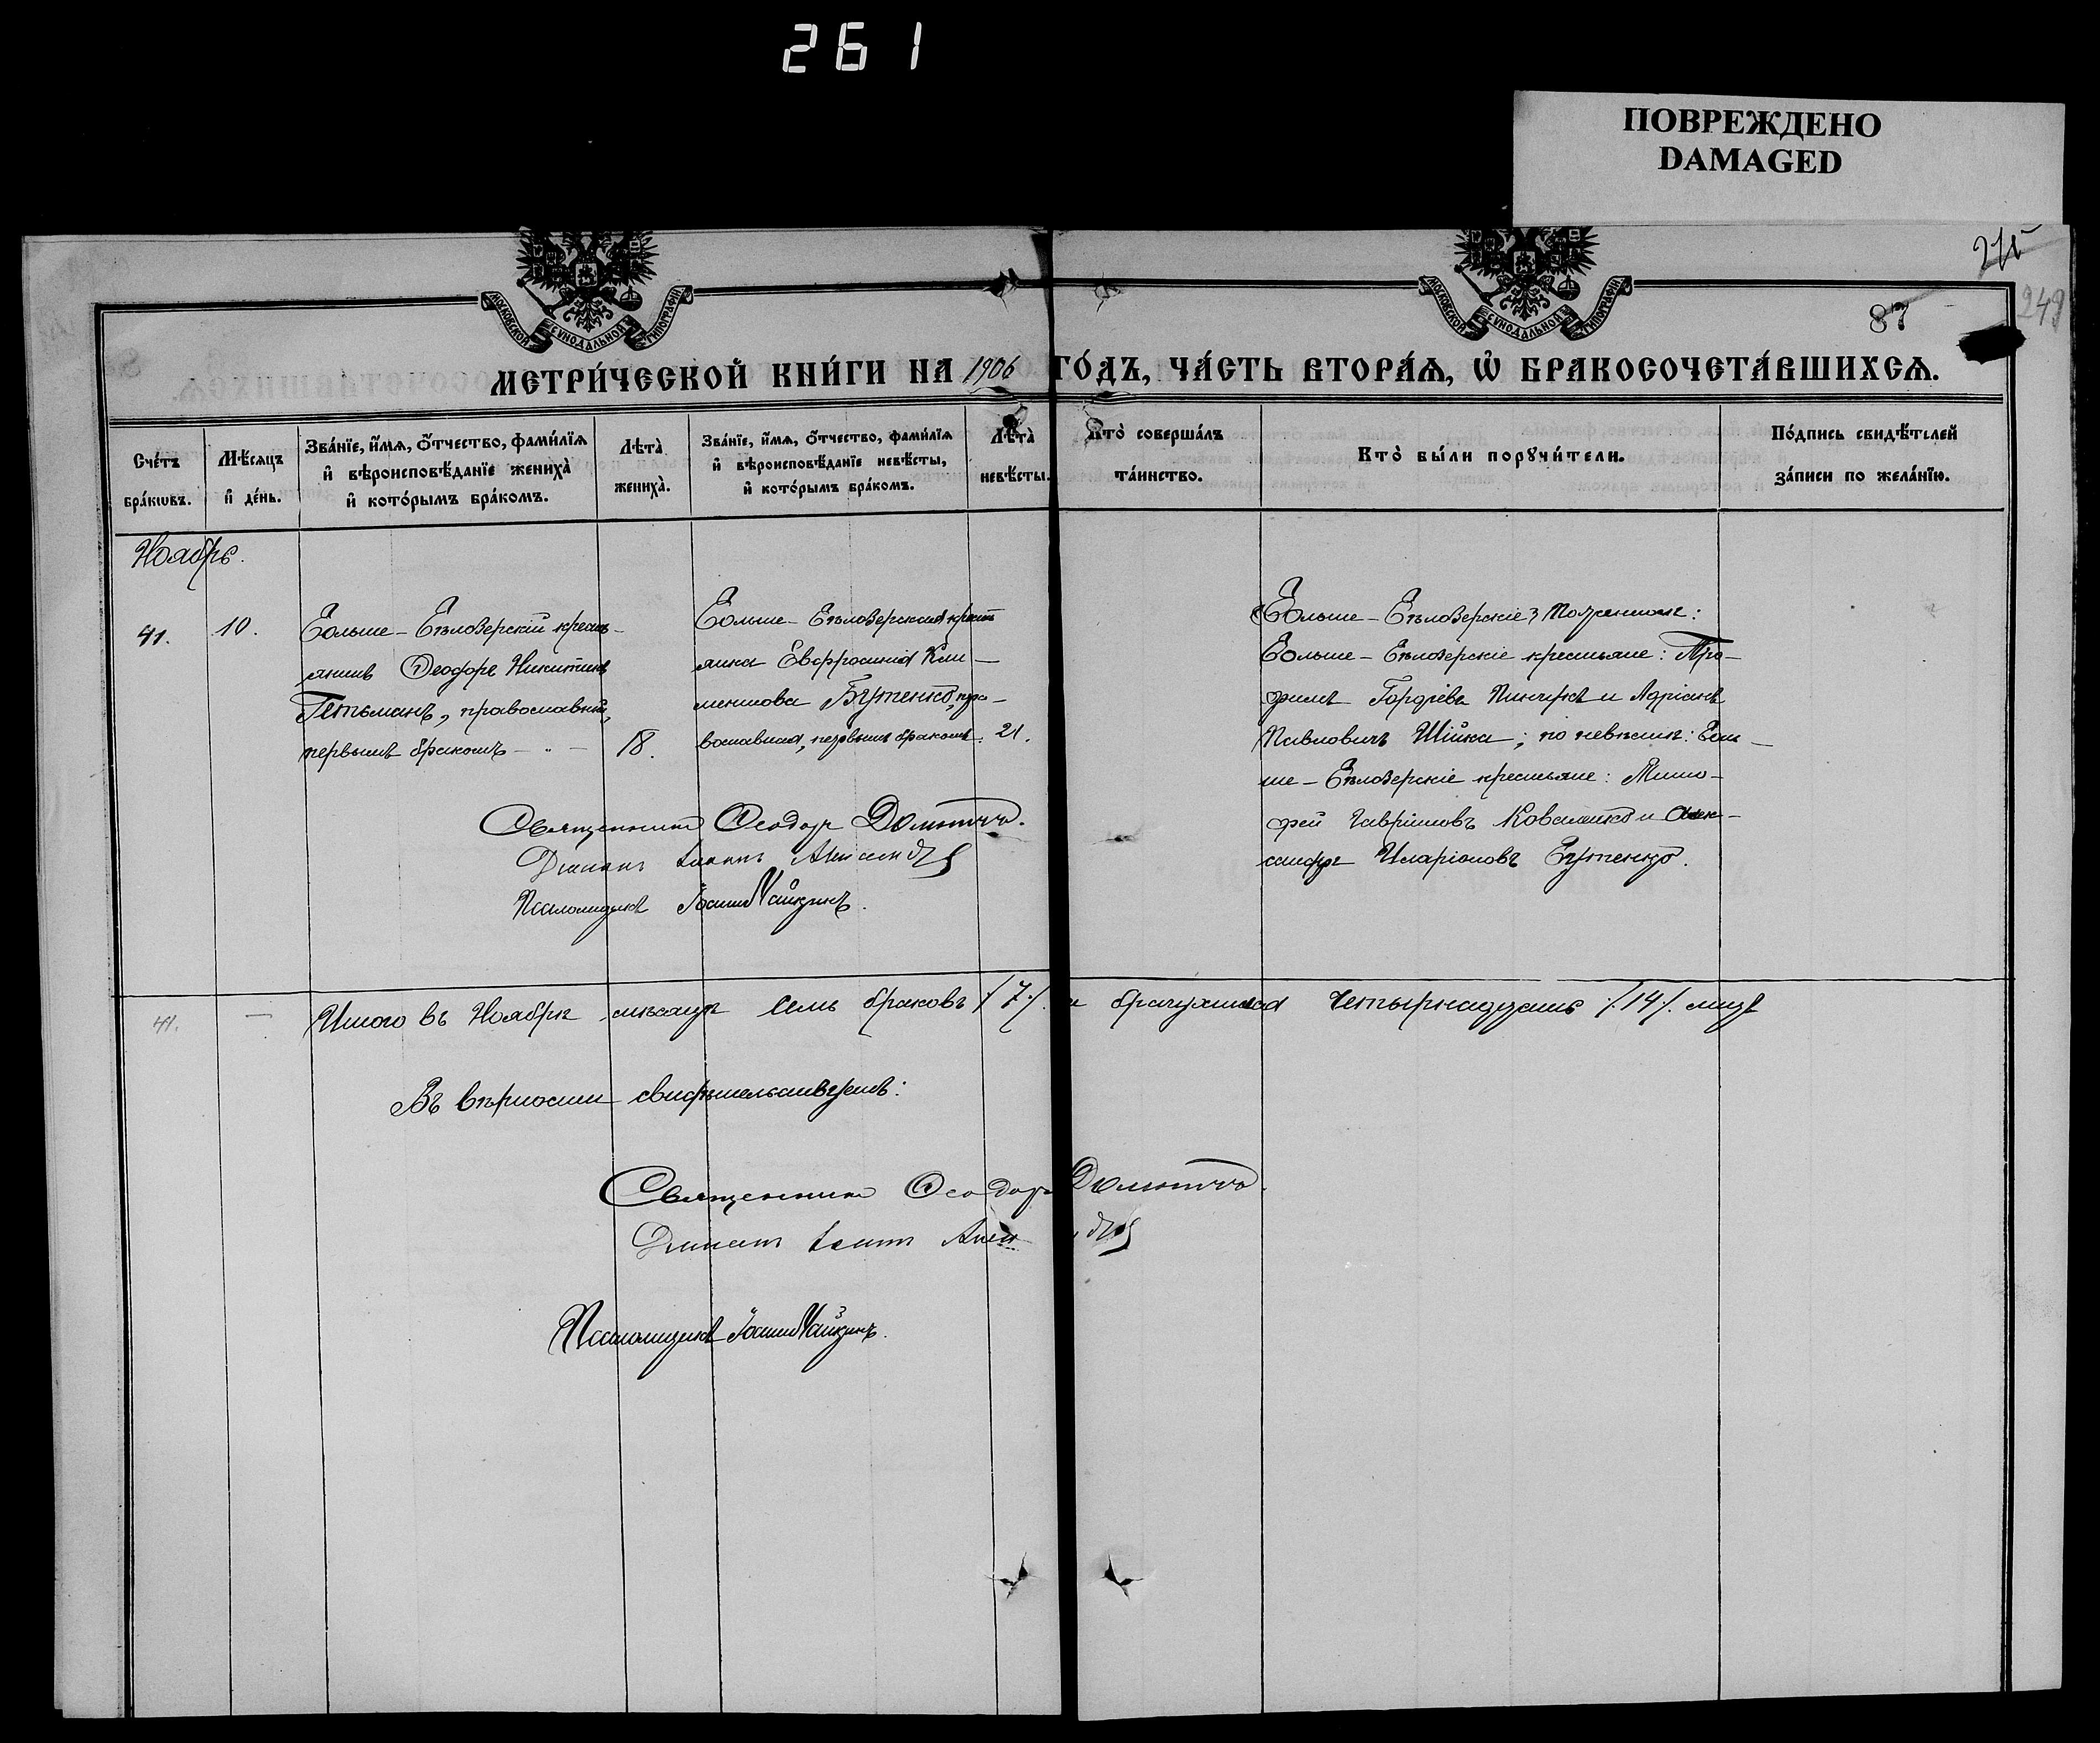 261
ПОВРЕЖДЕНО
DAMAGED
249
87
МОСКОВСКОЙ СѴНОДАЛЬНОЙ ТИПОГРАФІИ
МОСКОВСКОЙ СѴНОДАЛЬНОЙ ТИПОГРАФІИ
МЕТРИ́ЧЕСКОЙ КНИ́ГИ НА 1906 ГО́ДЪ, ЧА́СТЬ ВТОРА́Ѧ, Ѡ҆ БРАКОСОЧЕТА́ВШИХСѦ.
Сче́тъ
бра́кѡвъ.
Мѣ́сяцъ
и҆ де́нь.
Зва́нїе, и҆́мѧ, ѻ҆́тчество, фами́лїѧ
и҆ вѣроисповѣ́данїе жениха̀
и҆ кото́рымъ бра́комъ.
Лѣта̀
жениха̀.
Зва́нїе, и҆́мѧ, ѻ҆́тчество, фами́лїѧ
и҆ вѣроисповѣ́данїе невѣ́сты,
и҆ кото́рымъ бра́комъ.
Лѣта̀
невѣ́сты.
Кто̀ соверша́лъ
та́инство.
Кто̀ бы́ли порꙋчи́тели.
По́дпись свидѣ́телей
за́писи по жела́нїю.
Ноябрь.
41.
10.
Больше-Бѣлозерскій кресть-
янинъ Ѳеодоръ Никитинъ
Гетьманъ, православный,
первымъ бракомъ
18.
Больше-Бѣлозерская крест
янка Евфросинія Кли-
ментова Бутенко, пра-
вославная, первымъ бракомъ.
21.
Больше-Бѣлозерскіе крестьяне: Тро-
фимъ Гордіевъ Пинчукъ и Адріанъ
Павловичъ Шійка; по невѣстѣ: Боль-
ше-Бѣлозерскіе крестьяне: Тимо-
фей Гавріиловъ Коваленко и Алек-
сандръ Иларіоновъ Бутенко.
Священникъ Ѳеодоръ
Діаконъ Іоаннъ
Псаломщикъ Іоаннъ Чайкинъ.
41.
Итого въ Ноябрѣ мѣсяцѣ семь браковъ /7/. и брачущихся четырнадцать /14/. лицъ
Въ вѣрности свидѣтельствуемъ:
Священникъ Ѳеодоръ
Діаконъ Іоаннъ
Псаломщикъ Іоаннъ Чайкинъ.